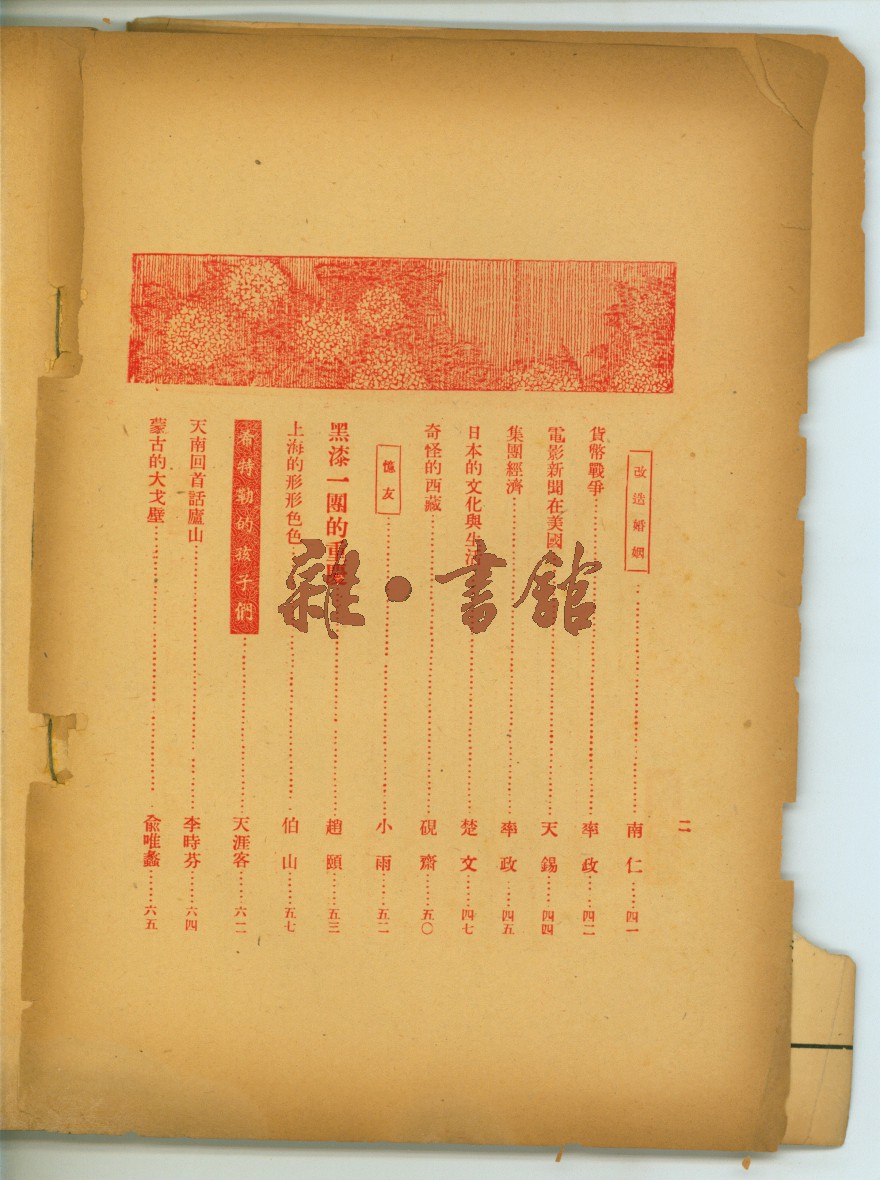 二
改造婚姻……南仁……四一
貨幣戰爭……率政……四二
電影新聞在美國……天錫……四四
集團經濟……率政……四五
日本的文化與生活……楚文……四七
奇怪的西藏……硯齋……五〇
憶友……小雨……五二
黑漆一團的重慶……趙頤……五三
上海的形形色色……伯山……五七
希特勒的孩子們……天涯客……六二
天南回首話廬山……李時芬……六四
蒙古的大戈壁……俞唯蠡……六五
雜·書舘